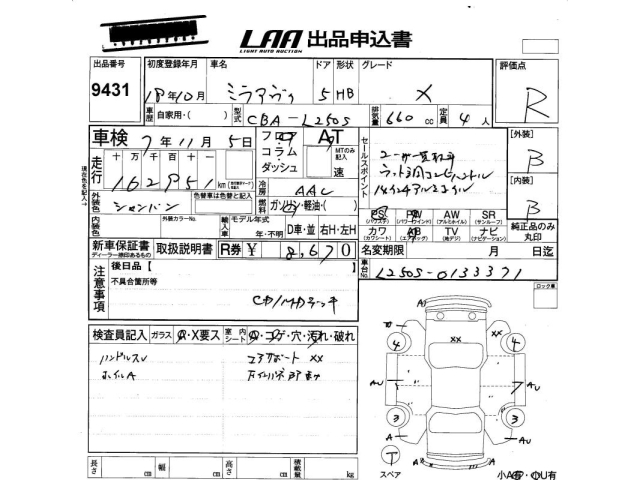 LAA 出品申込書
LIGHT AUTO AUCTION
出品番号
9431
初度登録年月 車名 ドア 形状 グレード 評価点
18年10月 ミラアヴィ 5 HB X R
車歴 自家用・( ) 型式 CBA-L250S 排気量 660 cc 定員 4 人
車検 7年11月5日
フロア コラム・ ダッシュ AT MTのみ記入 速
セールスポイント
[外装] B
[内装] B
現在色を記入
走行 十 万 千 百 十 一
162951 km
冷房 AAC
外装色 シャンパン 色替車は色替と記入
燃料 ガソリン・軽油・( )
内装色 外装カラーNo. 輸入車 モデル年式 年・不明 D車・並 右H・左H
PS (パワステ) PW (パワーウインド) AW (アルミホイル) SR (サンルーフ)
カワ (カワシート) AB (エアバッグ) TV (地デジ) ナビ (ナビゲーション)
純正品のみ丸印
新車保証書 ディーラー捺印あるもの 取扱説明書 R券 ¥ 8,670
名変期限 月 日迄
車台No. L250S-0133371
注意事項
後日品【
不具合箇所等
ロック車
検査員記入 ガラス A・X要ス 室内シート A・コゲ・穴・汚れ・破れ
ハンドルスレ コアサポート XX
ホイルA
長さ cm 幅 cm 高さ cm 積載量 kg
A
XX
4 4
AU AU
3 3
XX
A A
AU
T
スペア
小A・小U有